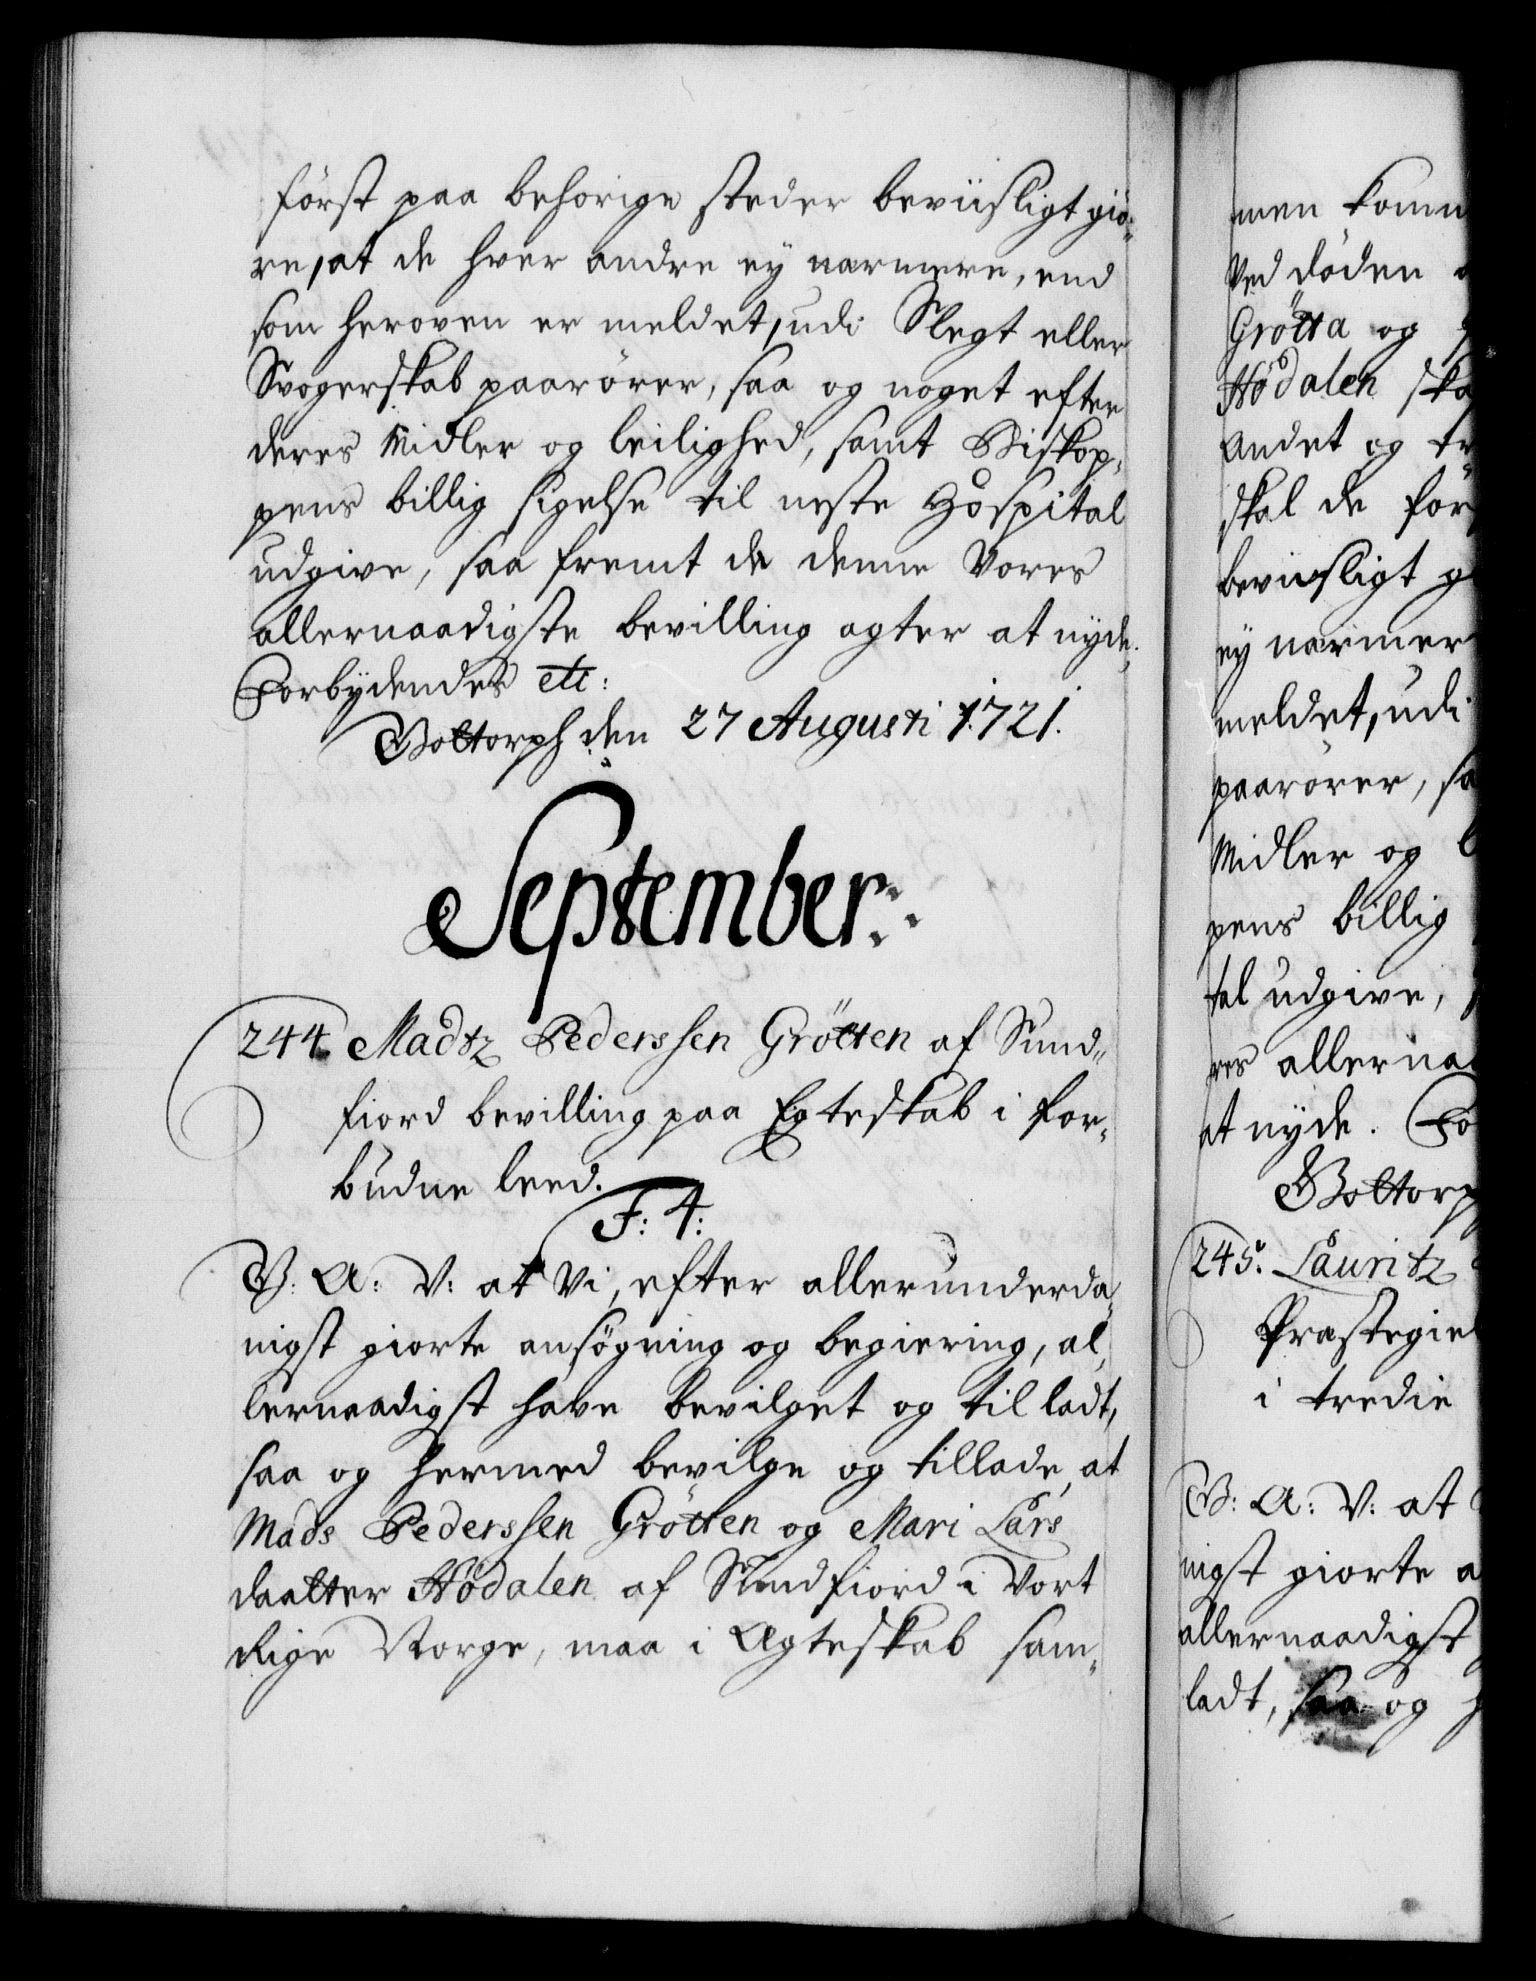 först paa behörige steder beviisligt giö„
re, at de hver andre ey nærmere, end
som heroven er meldet, udi Slegt eller
Svogerskab paarörer, saa og noget efter
deres Midler og leilighed, samt Biskop„
pens billig sigelse til neste Hospital
udgive, saa fremt de denne Vores
allernaadigste bevilling agter at nyde.
Forbydendes etc:
Gottorph den 27 Augusti 1721.
September:
244. Madtz Pederssen Grötten af Sund„
fiord bevilling paa Egteskab i for„
budne leed.
F: 4:
V: A: V: at Vi, efter allerunderda„
nigst giorte ansögning og begiering, al„
lernaadigst have bevilget og tilladt,
saa og hermed bevilge og tillade, at
Mads Pederssen Grötten og Mari Lars
daatter Hödalen af Sundfiord i Vort
Rige Norge, maa i Ægteskab sam„
men komm
Ved döden
Grötta og
Hödalen ska
Andet og tr
skal de för
beviisligt g
ey nærmer
meldet, udi
paarörer, sa
Midler og
pens billig
tal udgive,
res allerna
at nyde. Fo
Gottorp
245. Lauritz
Præstegie
i tredie
V: A: V: at
nigst giorte a
allernaadigst
ladt, saa og h